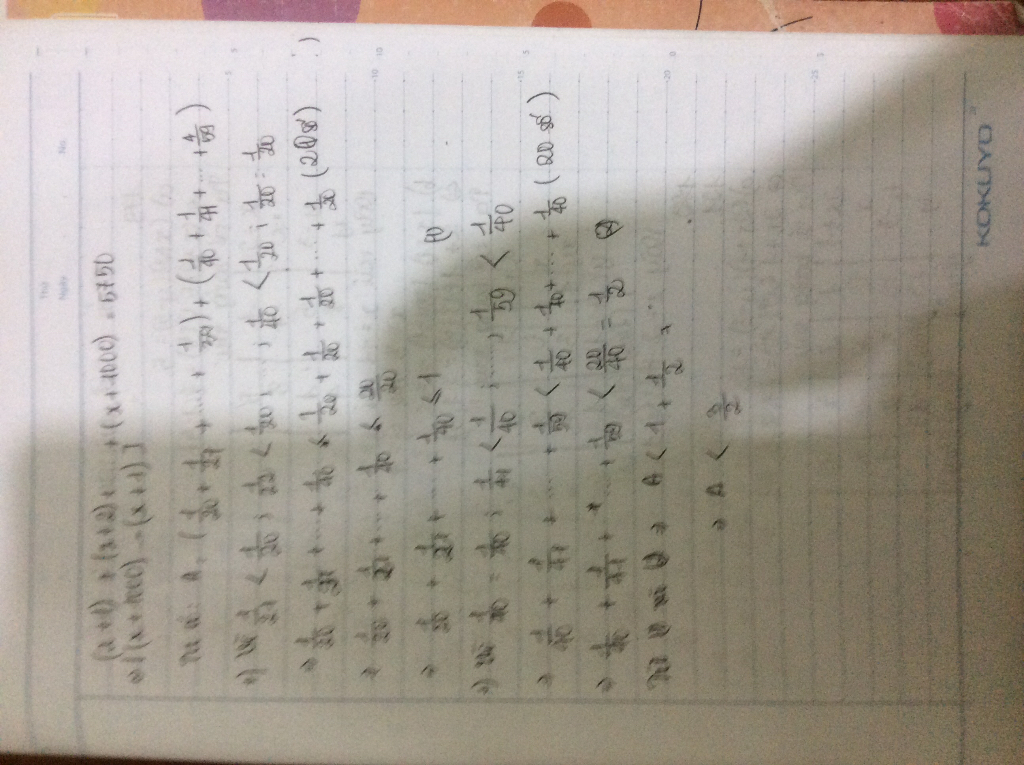 Thứ
Ngày
No.
(x+1) + (x+2) + ..... + (x+100) = 5750
⇒ [(x+100) - (x+1)]
Ta có: A = (1/20 + 1/21 + ... + 1/39) + (1/40 + 1/41 + ... + 1/59)
+) Vì 1/21 < 1/20 ; 1/22 < 1/20 ; ... ; 1/40 < 1/20 ; 1/20 = 1/20
⇒ 1/20 + 1/21 + ... + 1/40 < 1/20 + 1/20 + 1/20 + ... + 1/20 (20 số)
⇒ 1/20 + 1/21 + ... + 1/40 < 20/20
⇒ 1/20 + 1/21 + ... + 1/40 ≤ 1 (1)
+) Vì 1/40 = 1/40 ; 1/41 < 1/40 ; ..... ; 1/59 < 1/40
⇒ 1/40 + 1/41 + ..... + 1/59 < 1/40 + 1/40 + ..... + 1/40 (20 số)
⇒ 1/40 + 1/41 + ... + 1/59 < 20/40 = 1/2 (2)
Từ (1) và (2) ⇒ A < 1 + 1/2
⇒ A < 3/2
KOKUYO